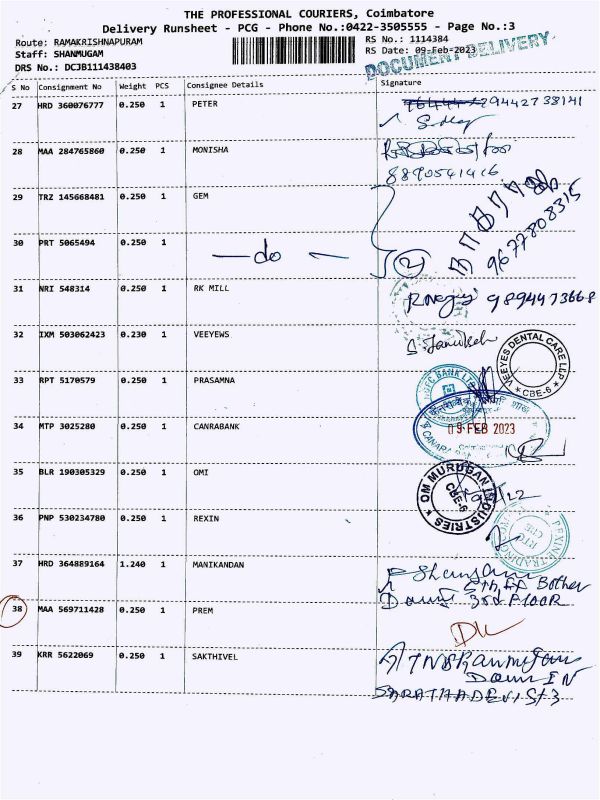 THE PROFESSIONAL COURIERS, Coimbatore
Delivery Runsheet - PCG - Phone No.:0422-3505555 - Page No.:3
Route: RAMAKRISHNAPURAM
RS No.: 1114384
Staff: SHANMUGAM
RS Date: 09-Feb-2023
DRS No.: DCJB111438403
DOCUMENT DELIVERY
S No Consignment No Weight PCS Consignee Details Signature
27 HRD 360076777 0.250 1 PETER 29442738141
28 MAA 284765860 0.250 1 MONISHA
8890541416
29 TRZ 145668481 0.250 1 GEM
30 PRT 5065494 0.250 1 — do — 2 9677808315
31 NRI 548314 0.250 1 RK MILL 9894473668
32 IXM 503062423 0.230 1 VEEYEWS
VEEYES DENTAL CARE LLP
* CBE-6 *
33 RPT 5170579 0.250 1 PRASAMNA
HDFC BANK LTD
34 MTP 3025280 0.250 1 CANRABANK
09 FEB 2023
35 BLR 190305329 0.250 1 OMI
OM MURUGAN INDUSTRIES
CBE-6
36 PNP 530234780 0.250 1 REXIN
37 HRD 364889164 1.240 1 MANIKANDAN
3rd FLOOR
38 MAA 569711428 0.250 1 PREM
39 KRR 5622069 0.250 1 SAKTHIVEL
SARATHADEVI St 3